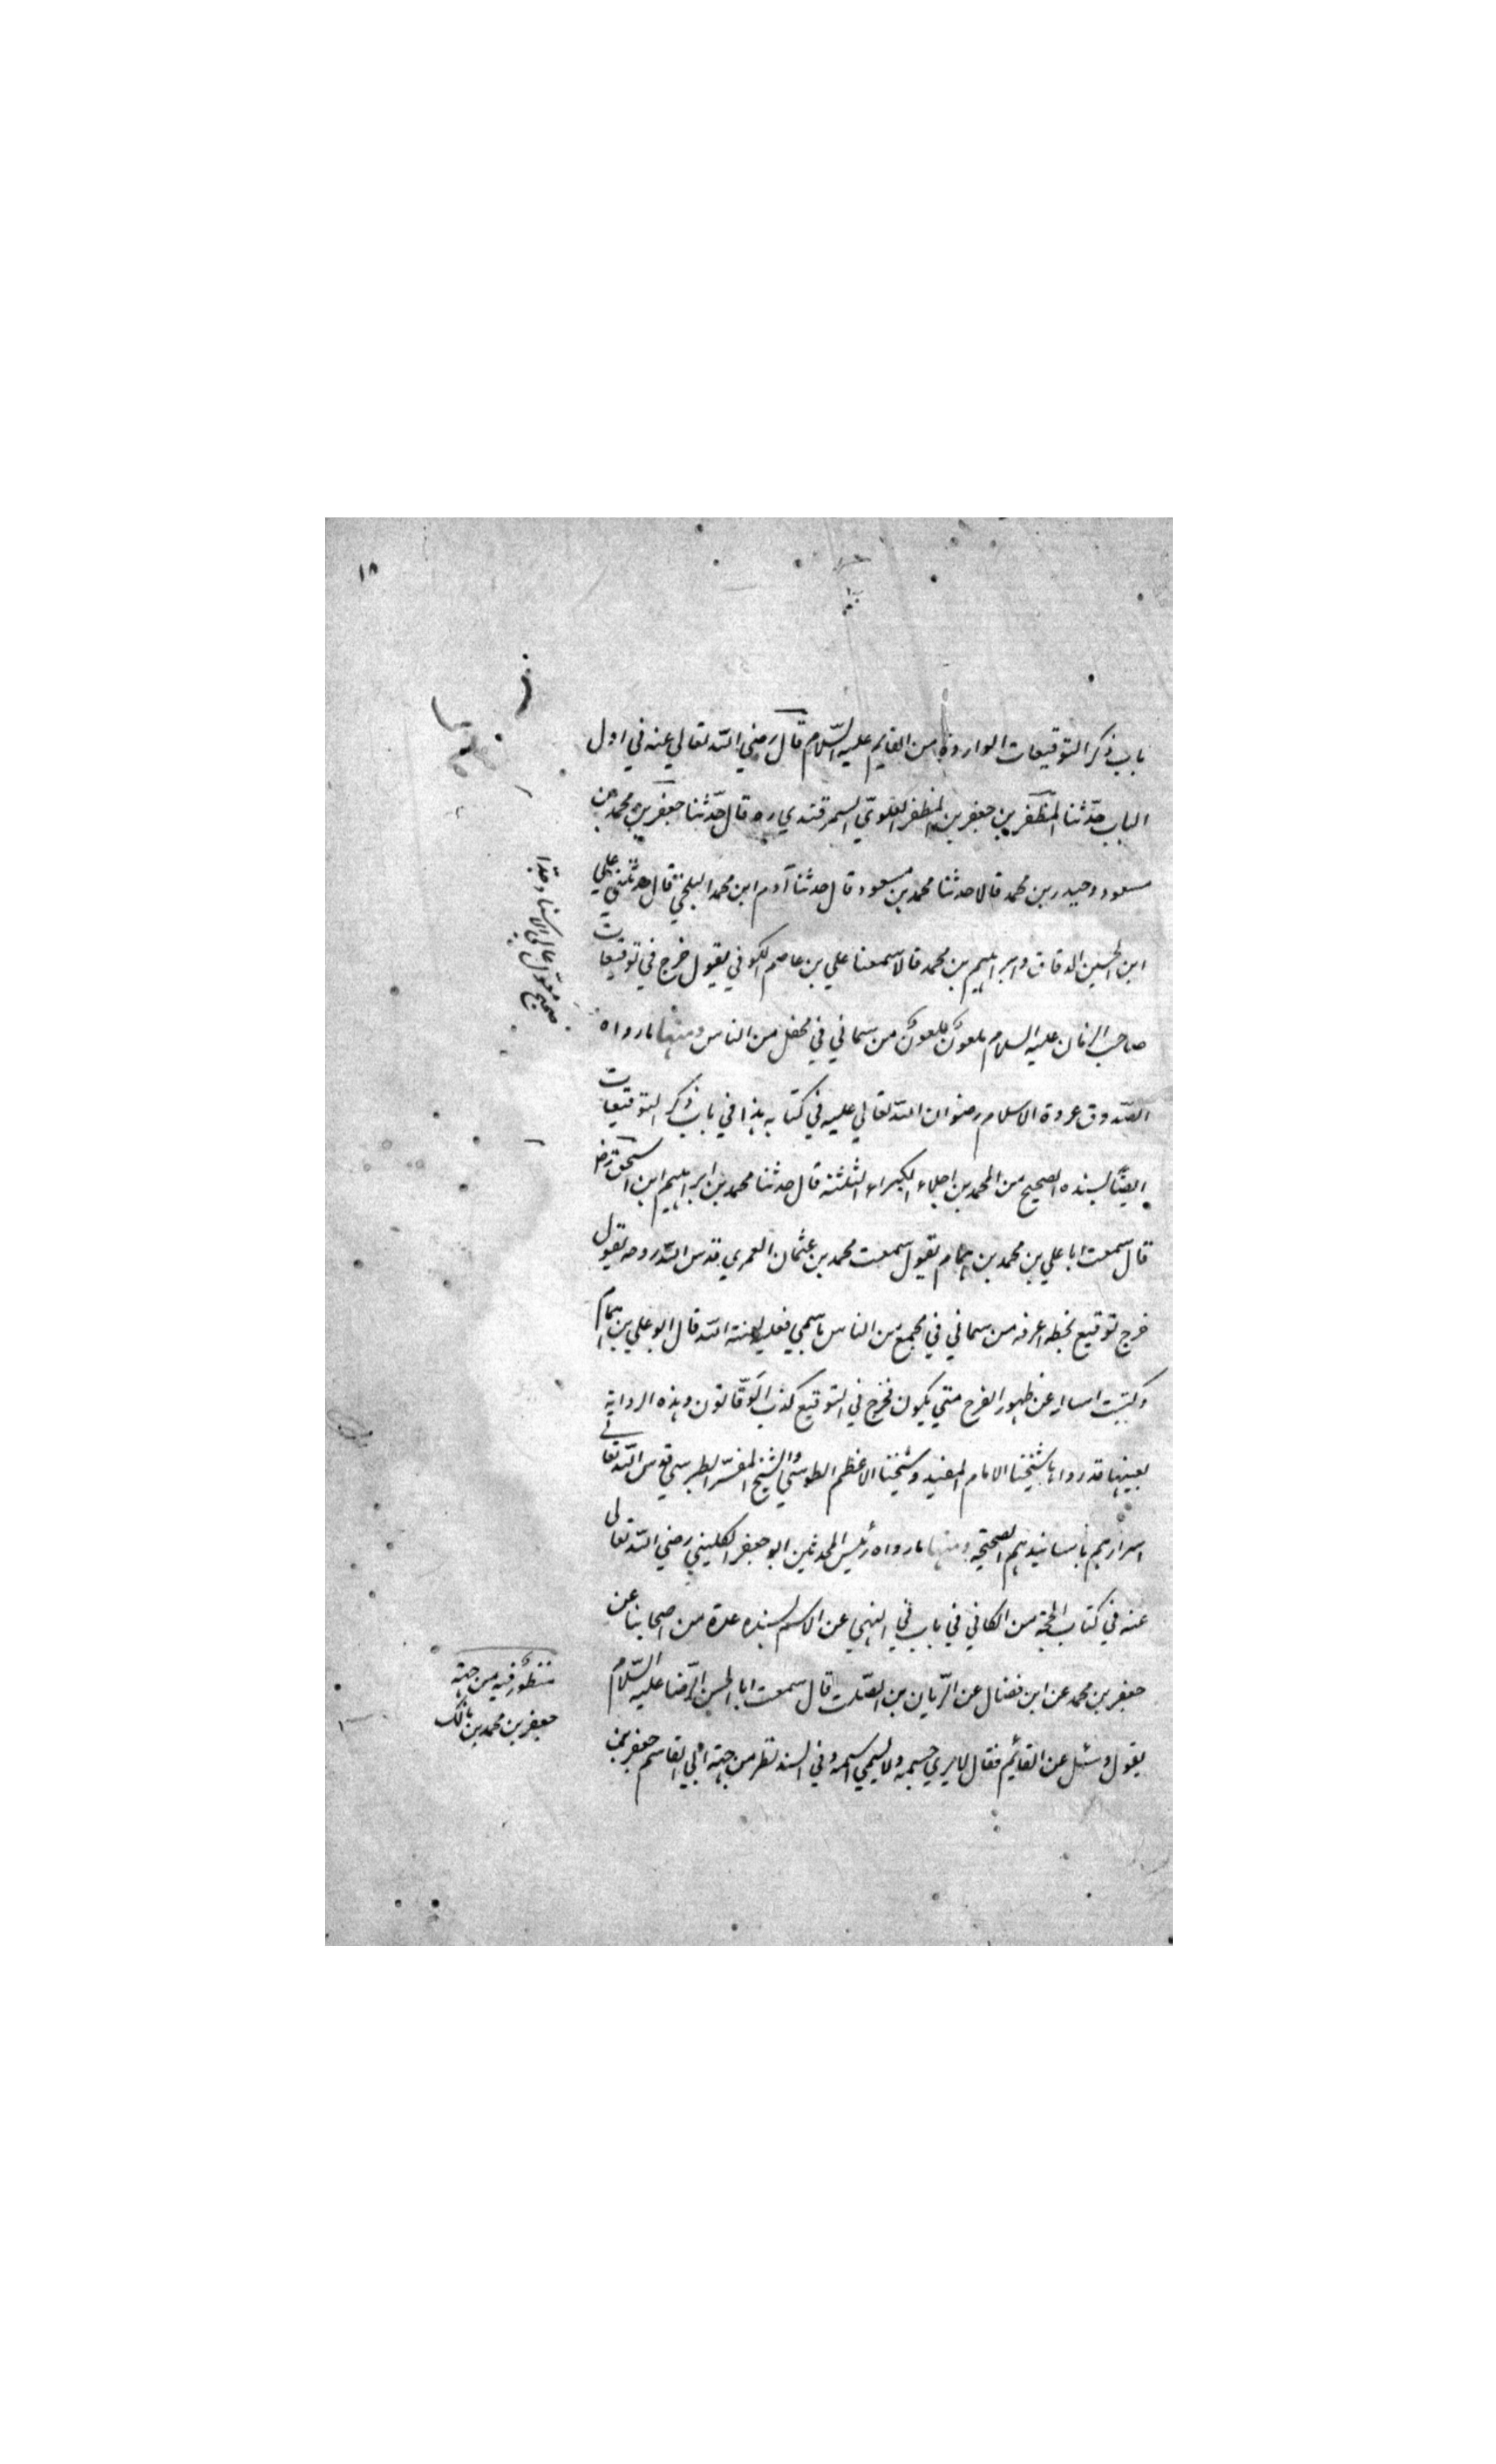 ١٨
باب ذكر التوقيعات الواردة من القايم عليه السّلام قال رضي الله تعالي عنه في اول
الباب حدّثنا المظّفر بن جعفر بن المظفر العلويّ السمرقندي ره قال حدّثنا جعفر بن محمد بن
مسعود وحيدر بن محمد قالا حدثنا محمد بن مسعود قال حدثنا آدم ابن محمد البلخيّ قال حدثني علي
ابن الحسين الدقاق وابراهيم بن محمد قالا سمعنا علي بن عاصم الكوفي يقول خرج في توقيعات
صاحب الزمان عليه السلام ملعونٌ ملعونٌ من سماني في محفل من الناس ومنها ما رواه
الصّدوق عروة الاسلام رضوان الله تعالي عليه في كتابه هذا في باب ذكر التوقيعات
ايضًا بسنده الصحيح من المحمدين اجلاء الكبراء الثلثة قال حدثنا محمد بن ابراهيم ابن اسحق رض
قال سمعت ابا علي بن محمد بن همام يقول سمعت محمد بن عثمان العمري قدس الله روحه يقول
خرج توقيع بخطه اعرفه من سماني في مجمع من الناس باسمي فعليه لعنة الله قال ابو علي بن همام
وكتبت اساله عن ظهور الفرج متي يكون فخرج في التوقيع كذب الوقّاتون وهذه الرواية
بعينها قد رواها شيخنا الامام المفيد وشيخنا الاعظم الطوسي والشيخ المفسّر الطبرسي قدس الله تعالي
اسرارهم باسانيدهم الصحيحة ومنها ما رواه رئيس المحدثين ابو جعفر الكليني رضي الله تعالي
عنه في كتاب الحجة من الكافي في باب في النهي عن الاسم بسنده عدة من اصحابنا عن
جعفر بن محمد عن ابن فضال عن الرّيان بن الصّلت قال سمعت ابا الحسن الرّضا عليه السّلام
يقول وسئل عن القائم فقال لا يري جسمه ولا يسمي اسمه وفي السند نظر من جهة ابي القاسم جعفر بن
صحيح معول عالي الاسناد جدا
منظورٌ فيه من جهة
جعفر بن محمد بن مالك